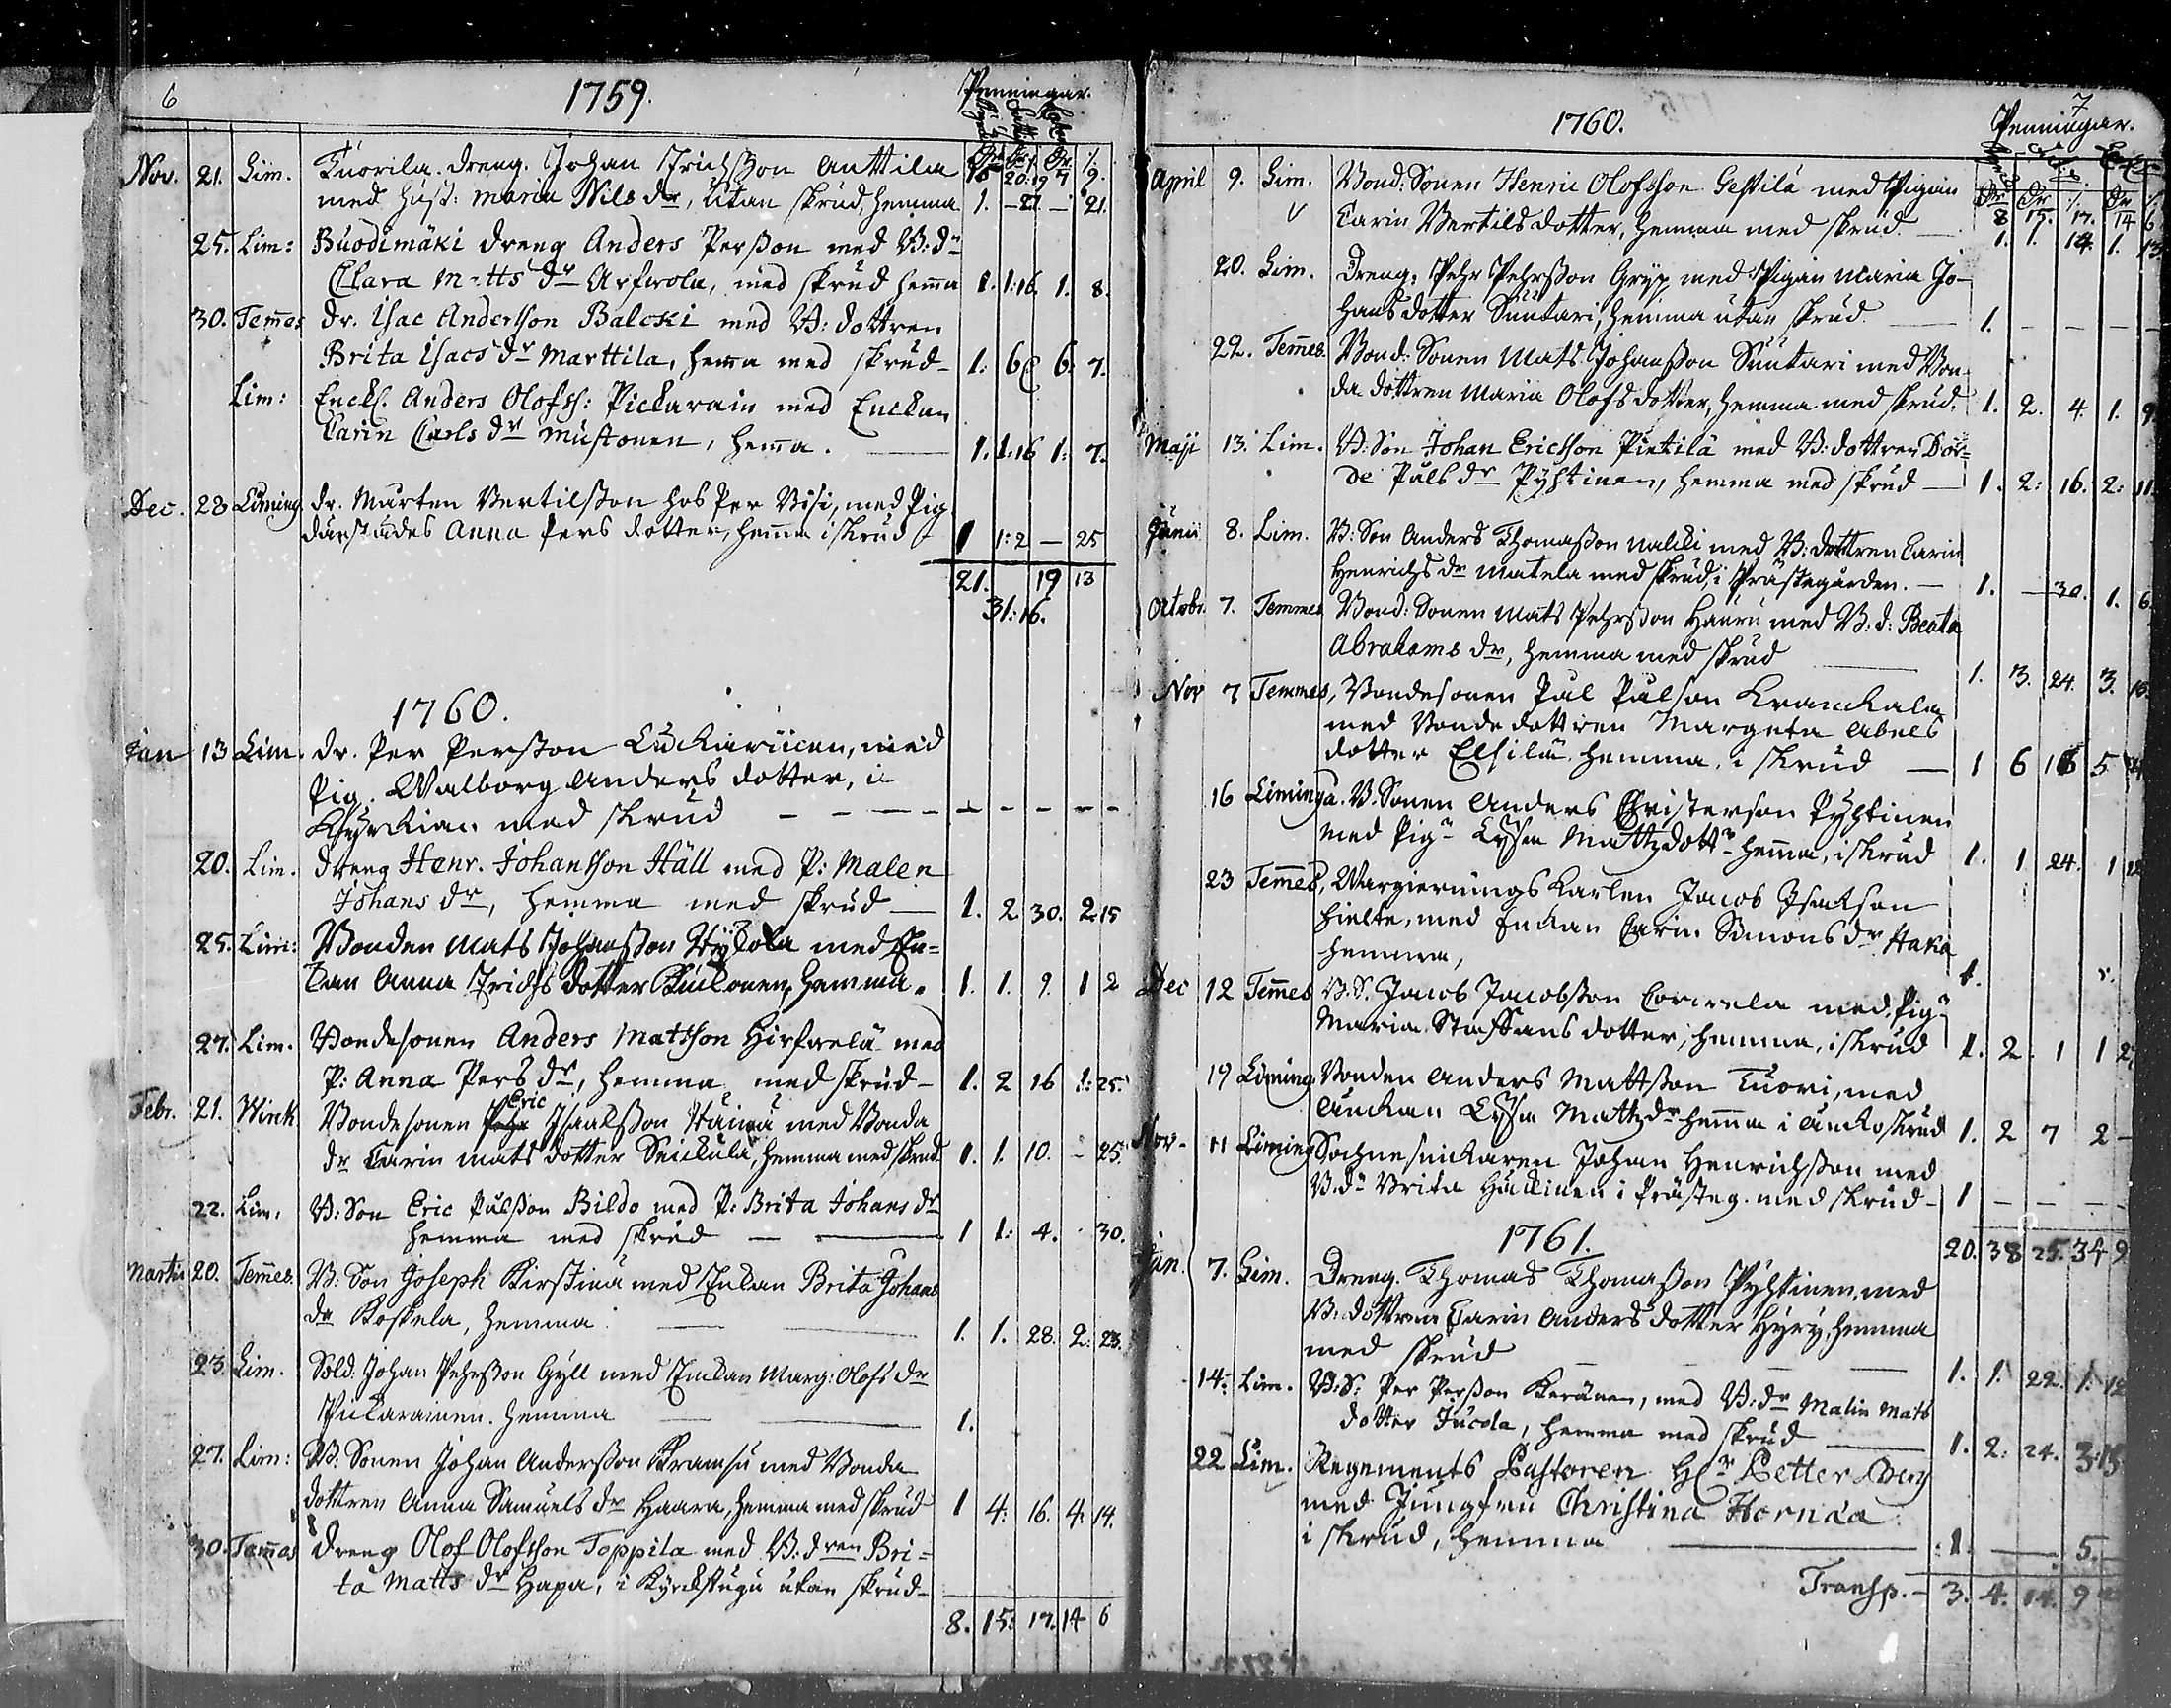 6
1759.
Penningar.
Nov. 21. Lim. Tuorila. dreng. Johan Erichsson Anttila
med Hust: Maria Nils dr, utan skrud, hemma 1. - 27. - 21.
25. Lim: Buodimäki dreng Anders Persson med B:dr
Clara M-tts dr Arfwola, med skrud hema 1. 1:16. 1. 8.
30. Temes dr. Isac Andersson Balcki med B: dottren
Brita Isacs dr Marttila, hema med skrud - 1: 6 6: 7.
Lim: Enckl. Anders Olofss: Pickarain med Enckan
Carin Carls dr Mustonen, hema. 1. 1:16 1: 7.
Dec. 28 Liming. dr. Mårten Bertilsson hos Per Visi, med Pig.
därstädes Anna Pers dotter, hema i skrud 1 1:2 - 25
21. 19 13
31:16.
1760.
Jan 13 Lim. dr. Per Persson Luckariinen, med
Pig. Walborg Anders dotter, i
Kyrckian med skrud - - - - - - - - -
20. Lim. dreng Henr. Johansson Häll med P: Malen
Johans dr, hemma med skrud - 1. 2 30. 2 15
25. Lim: Bonden Mats Johansson med En=
kan Anna Erichs dotter hemma. 1. 1. 9. 1 2
27. Lim. Bondesonen Anders Matsson Hirfwelä med
P: Anna Pers dr, hemma med skrud - 1. 2 16 1:25.
Febr. 21. Wirck Bondesonen Eric Isaksson med Bonda
dr Carin Mats dotter hemma med skrud. 1. 1. 10. - 25.
22. Lim. B: Son Eric Pulsson Bildo med P: Brita Johans dr
hemma med skrud - 1 1: 4. 30.
Martii 20. Temes. B: Son Joseph Kirstinä med Enkan Brita Johans
dr Koskela, hemma 1. 1. 28. 2: 23.
23. Lim. Sold: Johan Pehrsson Gyll med Enkan Marg: Olofs dr
Pickarainen. hemma 1.
27. Lim: B. Sonen Johan Andersson Kramsu med Bonda
dottren Anna Samuels dr Haara, hemma med skrud 1 4: 16. 4. 14.
30. Temas dreng Olof Olofsson Toppila med B: dren Bri=
ta Matts dr Hapa, i Kyrckstugu utan skrud -
8. 15: 17. 14 6
7
1760.
Penningar.
8 15. 17. 14 6
April 9. Lim. Bond: Sonen Henric Olofsson Gestilä med Pigan
Carin Bertils dotter, hemma med skrud 1. 1. 14. 1. 13
20. Lim. Dreng: Pehr Pehrsson Gryp med Pigan Maria Jo-
hans dotter Suutari, hemma utan skrud 1. - - - -
22. Temes. Bond: Sonen Mats Johansson Suutari med Bon-
da dottren Maria Olofs dotter, hemma med skrud. 1. 2. 4. 1. 9
Maji 13. Lim. B: Son Johan Ericsson Pietilä med B: dottren Bor=
de Påls dr Pyhtinen, hemma med skrud - 1. 2: 16. 2: 11.
Junii 8. Lim. B: Son Anders Thomasson Nalkki med B: dottren Carin
Henrichs dr Matela med skrud, i Prästegården. - 1. - 30. 1. 6.
Octobr. 7. Temmes Bond: Sonen Mats Pehrsson Hauru med B: d: Beata
Abrahams dr, hemma med skrud 1. 3. 24. 3.
Nov 7 Temmes, Bondesonen Pål Pålson Kranckala
med Bonde dottren Margeta Abels
dotter Elsilä, hemma, i skrud - 1 6 16 5
16 Liminga. B. Sonen Anders Christerson Pyhtinen
med Pign Lysa Mattzdottr hema, i skrud 1. 1 24. 1 12
23 Temes, Wargierings Karlen Jacob Isakson
Hielte, med Enckan Carin Simons dr Haka
hemma, 1.
Dec 12 Temes B. S. Jacob Jacobsson med Pign
Maria Staffans dotter, hemma, i skrud 1. 2. 1 1 2
19 Liming. Bonden Anders Mattsson Tuori, med
änckan Lysa Mattz dr hema i änckoskrud 1. 2 7 2 -
Nov- 11 Liming Sochnesnickaren Johan Henrichsson med
B:dr Brita Häikinen i Prästeg. med skrud - 1 - - -
20. 38 25. 34 9
1761.
Jan. 7. Lim. Dreng. Thomas Thomasson Pyhtinen, med
B: dottren Carin Anders dotter Hyry, hemma
med skrud 1. 1. 22. 1. 12
14. Lim. B: S: Per Persson Keränen, med B: dr Malin Mats
dotter Jucola, hemma med skrud 1. 2: 24. 3:15
22 Lim. Regements Pastoren Hr Petter
med Jungfru Christina Hornæa
i skrud, hemma 1. - 5. -
Transp. - 3. 4. 14. 9